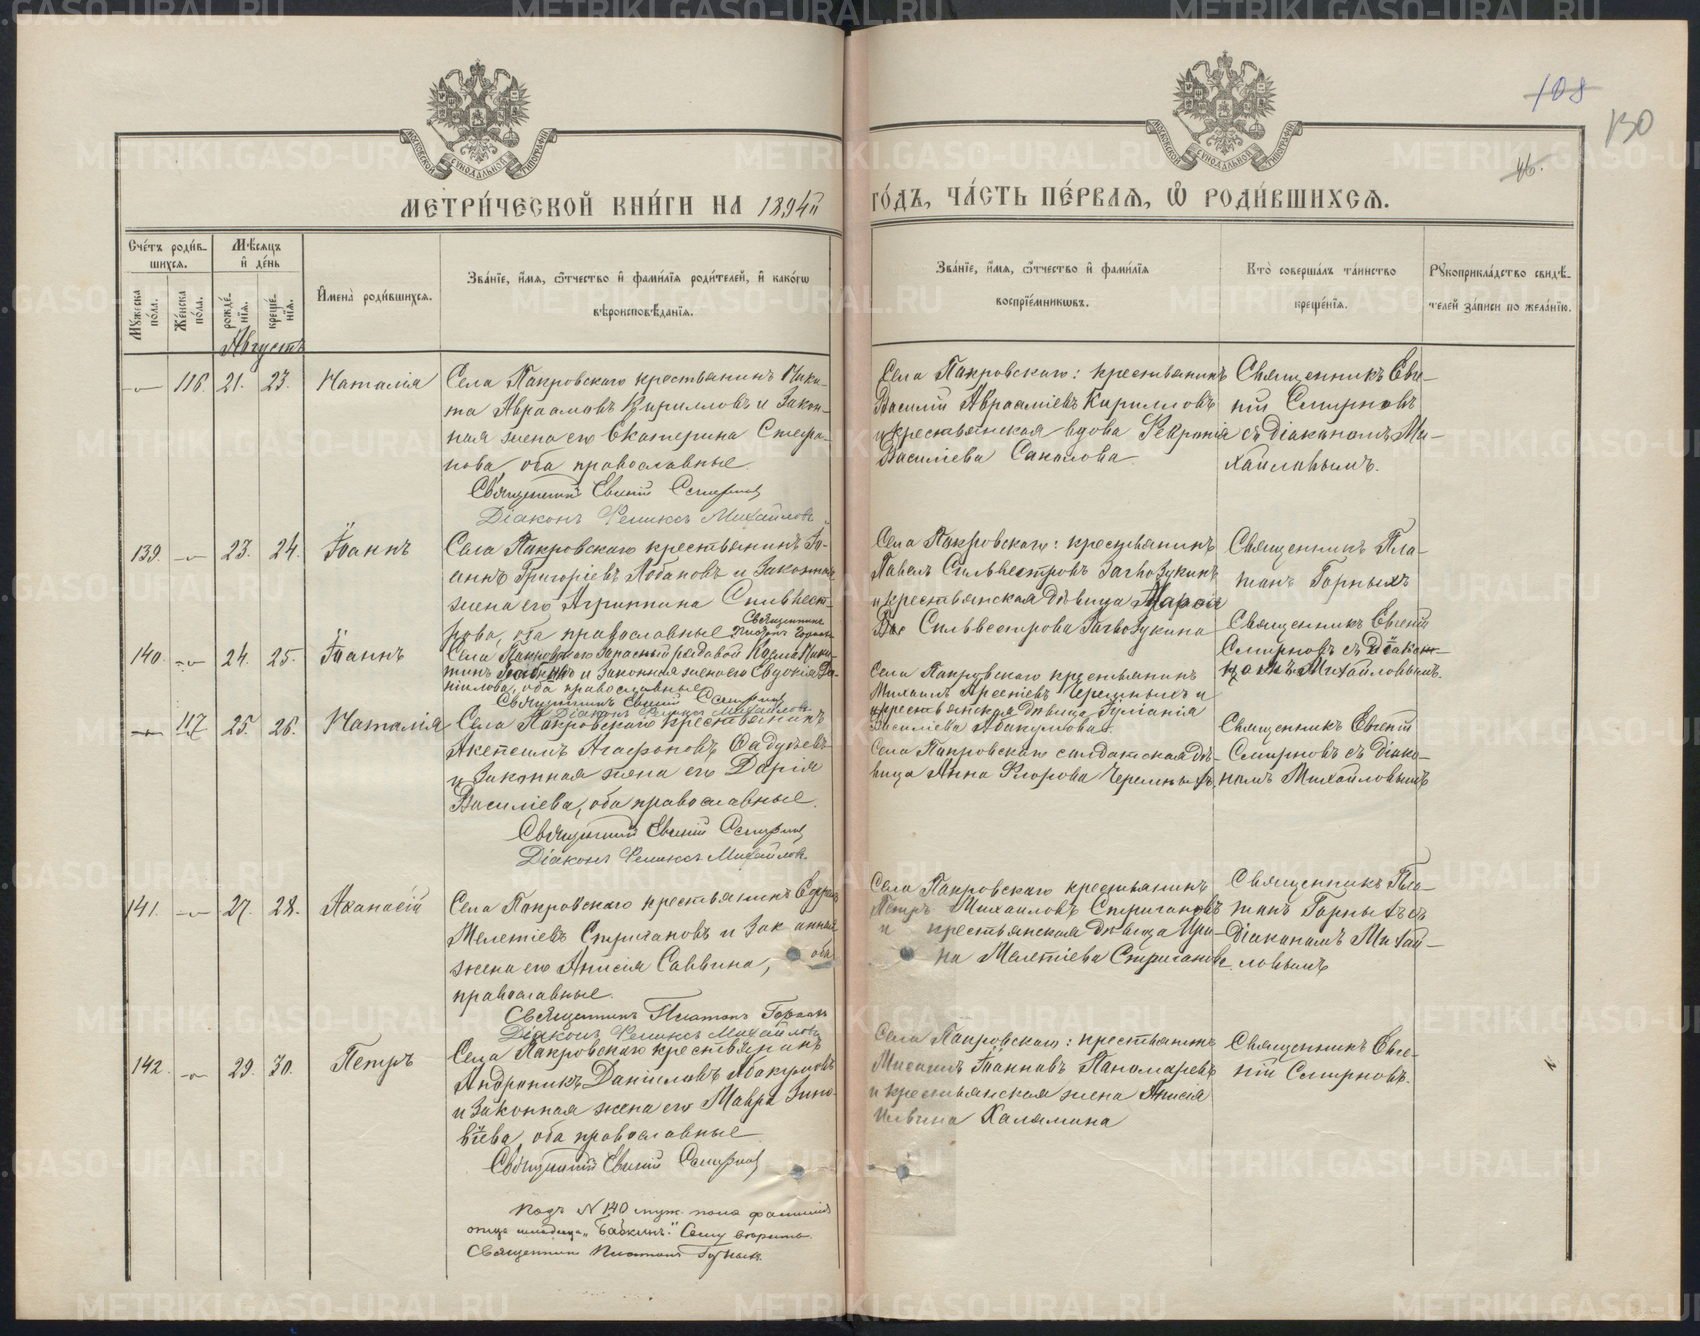 108
130
46.
МОСКОВСКОЙ СУНОДАЛЬНОЙ ТИПОГРАФІИ
МОСКОВСКОЙ СУНОДАЛЬНОЙ ТИПОГРАФІИ
МЕТРИ́ЧЕСКОЙ КНИ́ГИ НА 1894й ГО́ДЪ, ЧА́СТЬ ПЕ́РВАЯ, Ѡ РОДИ́ВШИХСЯ.
Сче́тъ роди́в-
шихся.
Му́жеска по́ла.
Же́нска по́ла.
Мѣ́сяцъ
и҆ де́нь
рожде́-нія.
креще́-нія.
И҆мена̀ роди́вшихся.
Зва́нїе, и҆́мя, ѻ҆́тчество и҆ фами́лїя роди́телей, и҆ како́гѡ
вѣроисповѣ́данїя.
Зва́нїе, и҆́мя, ѻ҆́тчество и҆ фами́лїя
воспрїе́мниковъ.
Кто̀ соверша́лъ та́инство
креще́нїя.
Рꙋкоприкла́дство свидѣ́-
телей за́писи по жела́нїю.
Августъ
— 116. 21. 23. Наталія
Села Покровскаго крестьянинъ Ники-
та Авраамовъ Кирилловъ и закон-
ная жена его Екатерина Стефа-
нова, оба православные.
Священникъ Евгеній Смирновъ
Діаконъ Феликсъ Михайловъ
Села Покровскаго: крестьянинъ
Василій Аврааміевъ Кирилловъ
и крестьянская вдова Феврнія
Василіева Сакалова
Священникъ Евге-
ній Смирновъ
съ діакономъ Ми-
хайловымъ.
139. — 23. 24. Іоаннъ
Села Покровскаго крестьянинъ Іо-
аннъ Григоріевъ Лобановъ и законная
жена его Агриппина Сильвест-
рова, оба православные Священникъ
Платонъ Горныхъ
Села Покровскаго: крестьянинъ
Павелъ Сильвестровъ Загвозкинъ
и крестьянская дѣвица Марія
Сильвестрова Загвозкина
Священникъ Пла-
тонъ Горныхъ
140. — 24. 25. Іоаннъ
Села Покровскаго запасный рядовой Косма Ники-
тинъ и законная жена его Евдокія Да-
ніилова, оба православные
Священникъ Евгеній Смирновъ
Діаконъ Феликсъ Михайловъ
Села Покровскаго крестьянинъ
Михаилъ Арсеніевъ Черемныхъ и
крестьянская дѣвица Іуліанія
Василіева Абакумова.
Священникъ Евгеній
Смирновъ съ діакон-
омъ Михайловымъ.
— 117. 25. 26. Наталія
Села Покровскаго крестьянинъ
Агафоновъ
и законная жена его Дарія
Василіева, оба православные.
Священникъ Евгеній Смирновъ
Діаконъ Феликсъ Михайловъ
Села Покровскаго солдатская дѣ-
вица Анна Флорова Черемныхъ.
Священникъ Евгеній
Смирновъ съ діако-
номъ Михайловымъ
141. — 27. 28. Аѳанасій
Села Покровскаго крестьянинъ
Мелетіевъ Стригановъ и законная
жена его Анисія Саввина, оба
православные.
Священникъ Платонъ Горныхъ
Діаконъ Феликсъ Михайловъ
Села Покровскаго крестьянинъ
Петръ Михаиловъ Стригановъ
и крестьянская дѣвица Ири-
на Мелетіева Стриганова
Священникъ Пла-
тонъ Горныхъ съ
діакономъ Михай-
ловымъ
142. — 29. 30. Петръ
Села Покровскаго крестьянинъ
Андроникъ Даніиловъ Абакумовъ
и законная жена его Мавра Зино-
віева, оба православные
Священникъ Евгеній Смирновъ
Села Покровскаго: крестьянинъ
Мисаилъ Іоанновъ Панамаревъ
и крестьянская жена Анисія
Халямина
Священникъ Евге-
ній Смирновъ.
Подъ № 140 муж. пола фамилія
отца младенца „Бабкинъ." Сему вѣрить.
Священникъ Платонъ Горныхъ.
METRIKI.GASO-URAL.RU